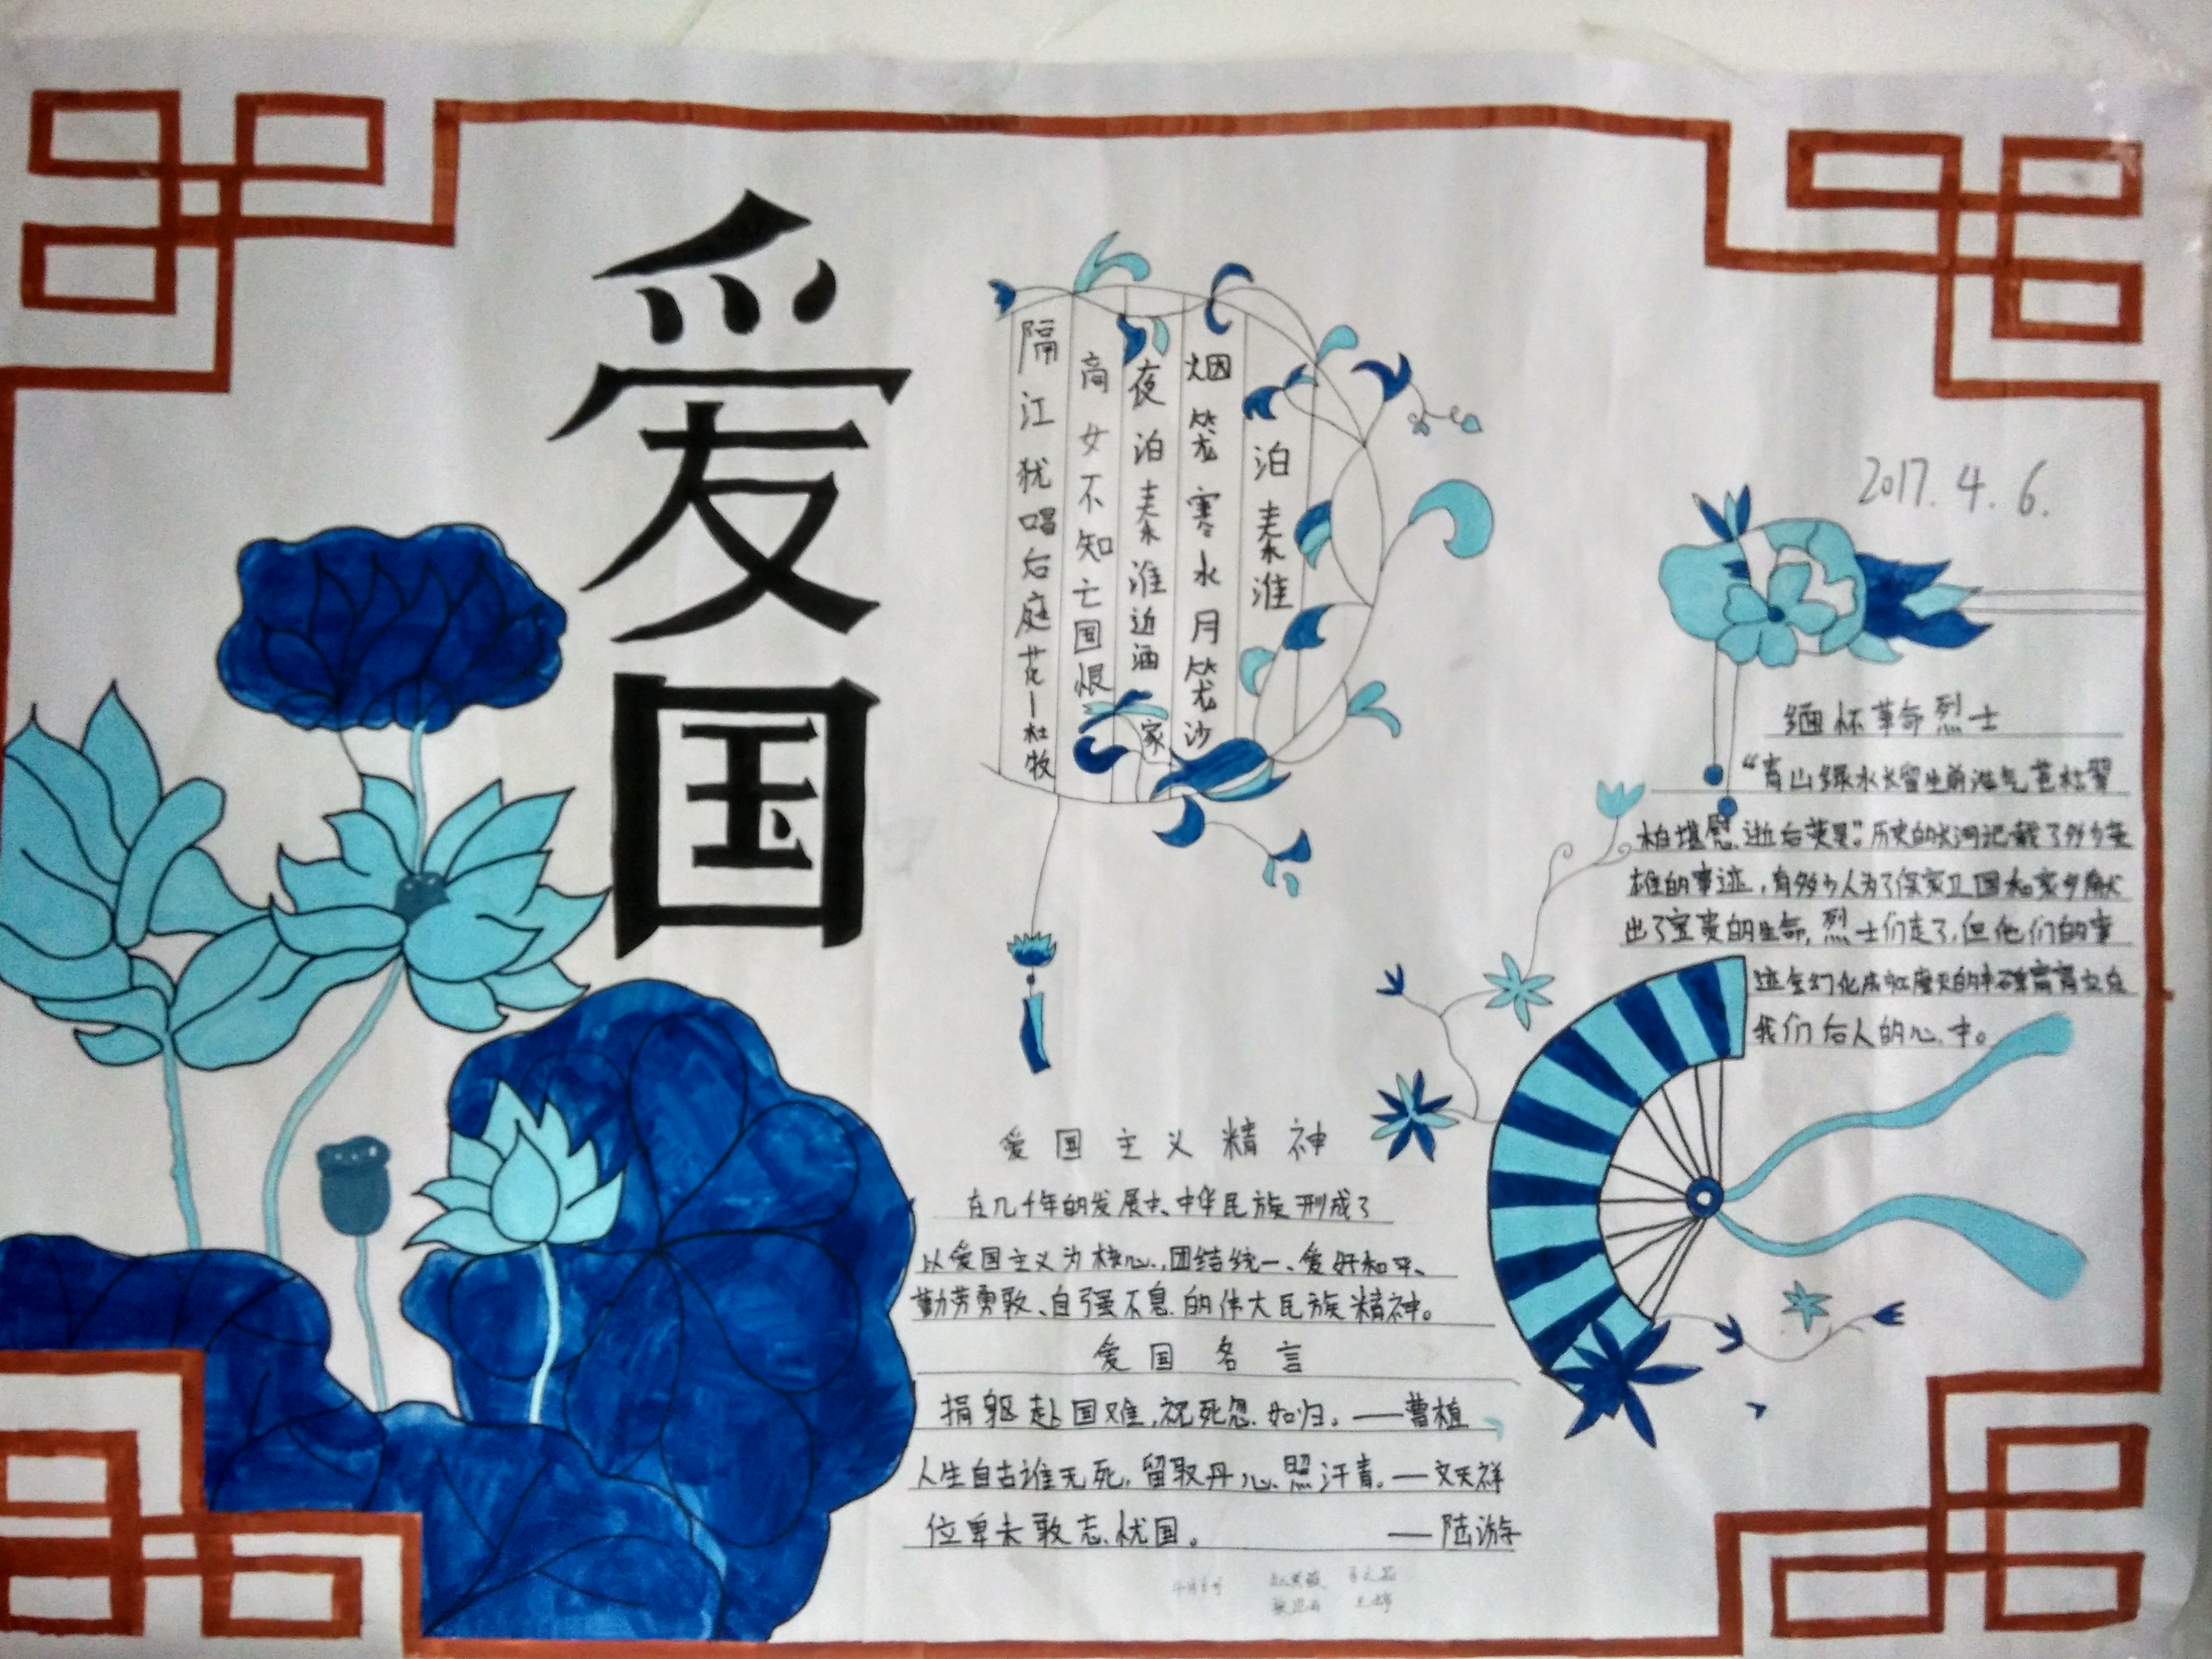 爱国
泊秦淮
烟笼寒水月笼沙
夜泊秦淮近酒家
商女不知亡国恨
隔江犹唱后庭花—杜牧
2017.4.6.
缅怀革命烈士
“青山绿水长留生前浩气苍松翠
柏堪慰逝后英灵”。历史的长河记载了多少英
雄的事迹,有多少人为了保家卫国和家乡献
出了宝贵的生命,烈士们走了,但他们的事
迹会幻化成如摩天的丰碑高高立在
我们后人的心中。
爱国主义精神
在几千年的发展中、中华民族形成了
以爱国主义为核心,团结统一、爱好和平、
勤劳勇敢、自强不息的伟大民族精神。
爱国名言
捐躯赴国难,视死忽如归。——曹植
人生自古谁无死,留取丹心照汗青。—文天祥
位卑未敢忘忧国。 ——陆游
4月6号